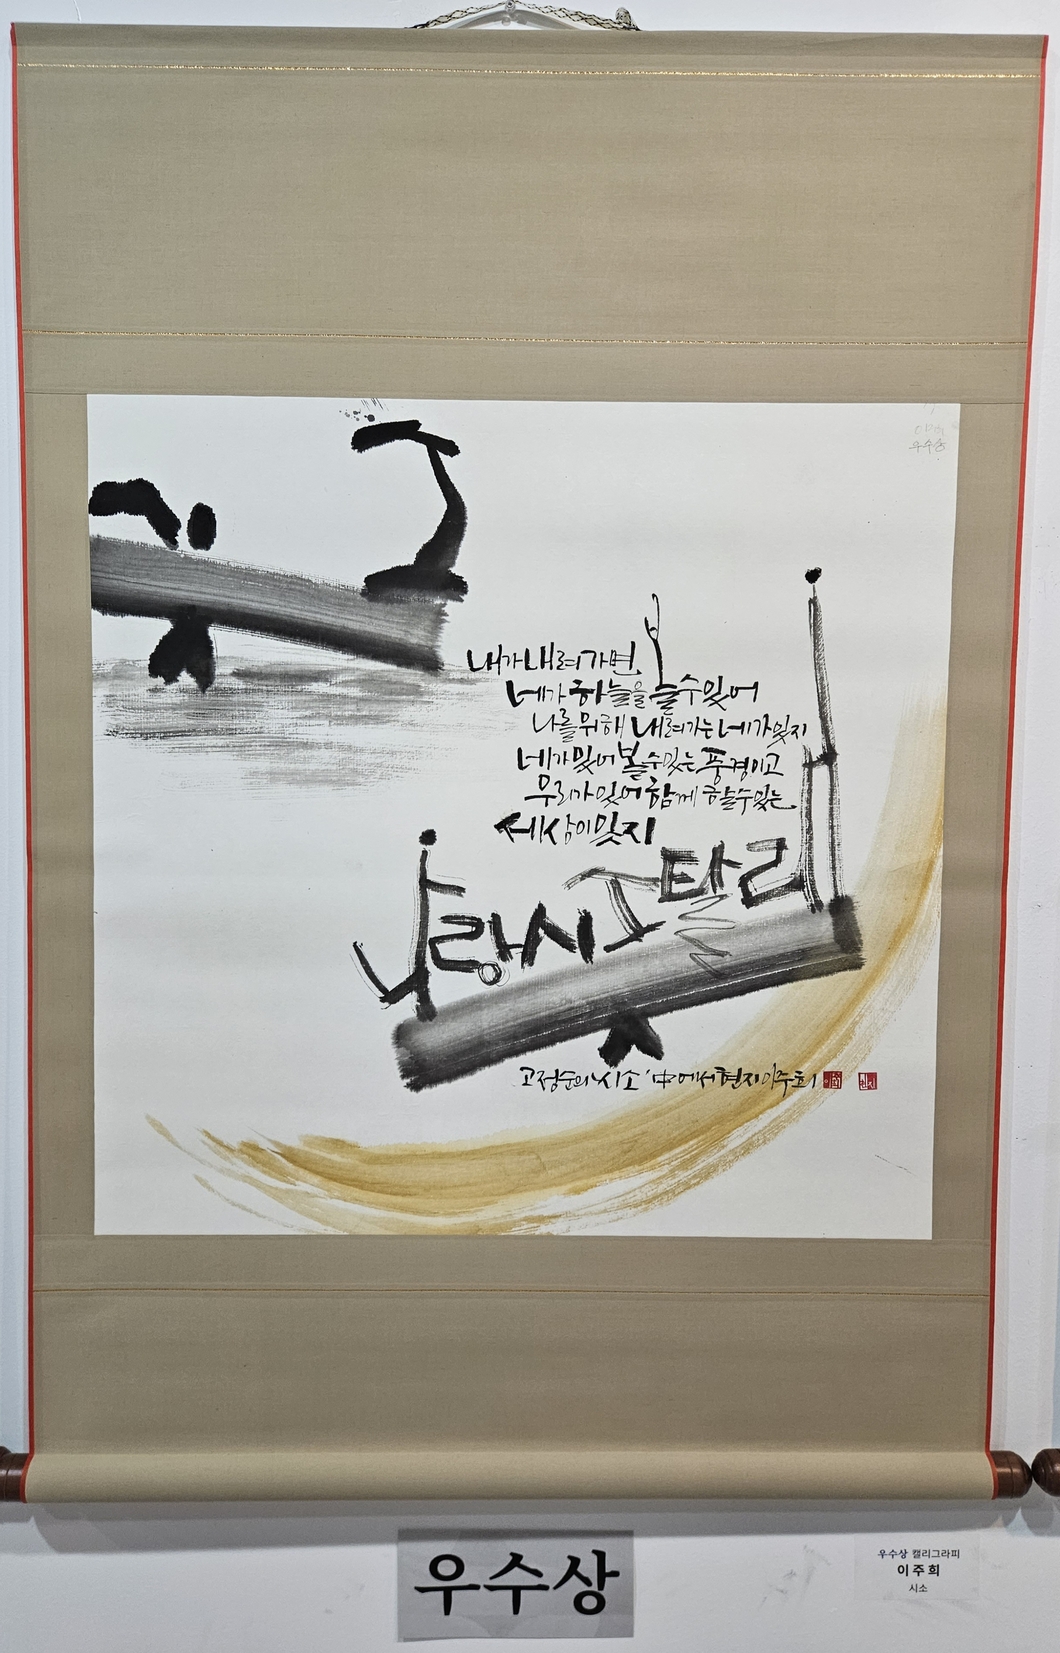 우수상
내가 내려가면
네가 하늘을 볼 수 있어
나를 위해 내려가는 네가 있지
네가 있어 볼 수 있는 풍경이고
우리가 있어 함께 할 수 있는
세상이 있지
나랑 시소 탈래
고정순의 '시소' 中에서 현지 이주희
우수상
우수상 캘리그라피
이주희
시소